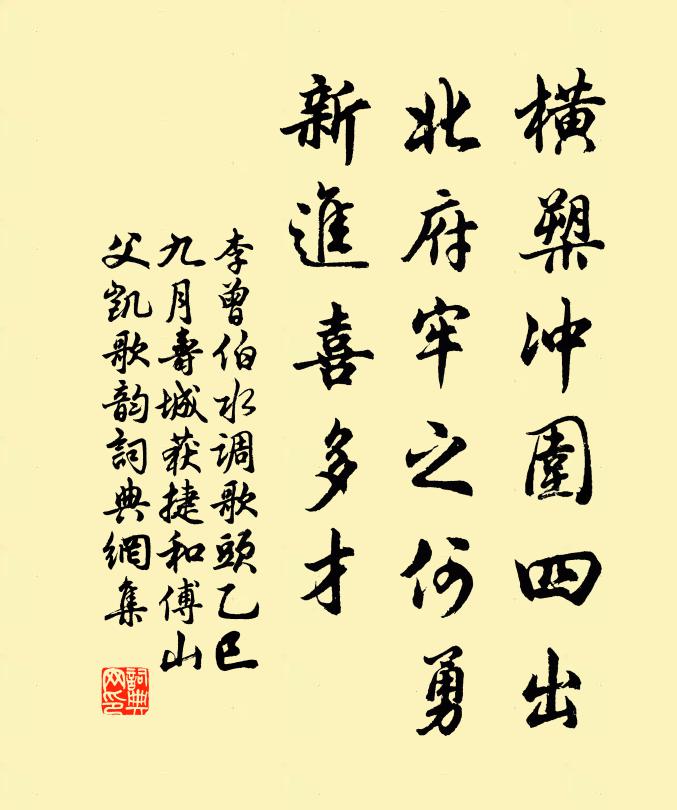 橫槊冲圍四出
北府牢之何勇
新進喜多才
李曾伯水调歌頭乙巳
九月壽城获捷和傅山
父凯歌韵詞典網集
詞典
网印